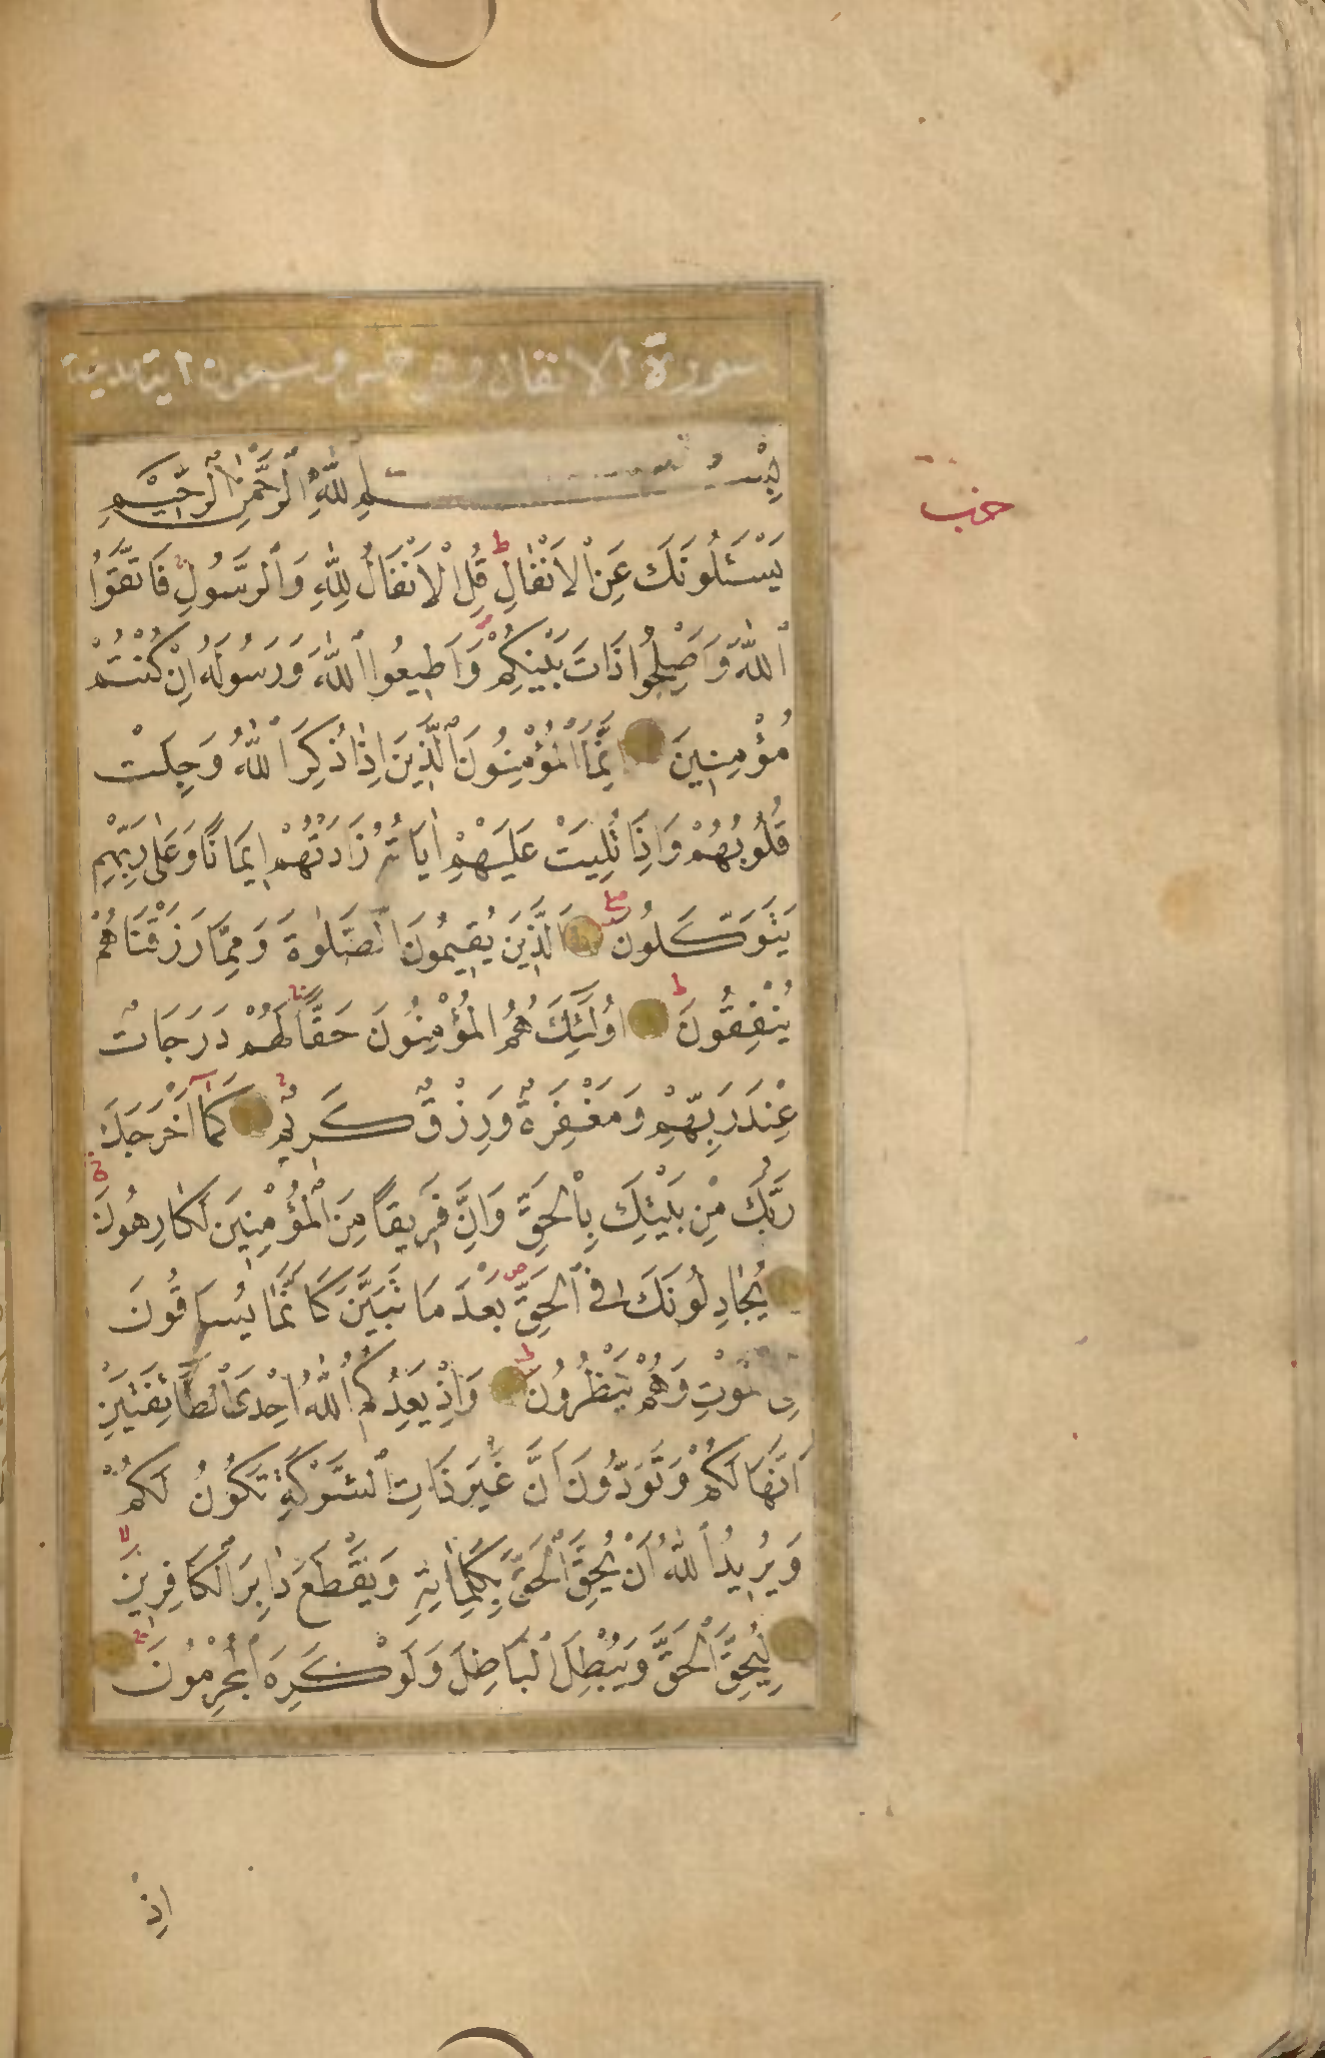 سورة الانفال وهى خمس وسبعون اية مدنية
بِسْمِ اللّٰهِ الرَّحْمٰنِ الرَّحِيْمِ
حزب
يَسْئَلُونَكَ عَنِ الْاَنْفَالِ ط قُلِ الْاَنْفَالُ لِلّٰهِ وَالرَّسُولِ فَاتَّقُوا
اللّٰهَ وَاَصْلِحُوا ذَاتَ بَيْنِكُمْ وَاَطِيعُوا اللّٰهَ وَرَسُولَهُ اِنْ كُنْتُمْ
مُؤْمِنِينَ اِنَّمَا الْمُؤْمِنُونَ الَّذِينَ اِذَا ذُكِرَ اللّٰهُ وَجِلَتْ
قُلُوبُهُمْ وَاِذَا تُلِيَتْ عَلَيْهِمْ اٰيَاتُهُ زَادَتْهُمْ اِيمَانًا وَعَلٰى رَبِّهِمْ
يَتَوَكَّلُونَ اَلَّذِينَ يُقِيمُونَ الصَّلٰوةَ وَمِمَّا رَزَقْنَاهُمْ
يُنْفِقُونَ ط اُولٰئِكَ هُمُ الْمُؤْمِنُونَ حَقًّا لَهُمْ دَرَجَاتٌ
عِنْدَ رَبِّهِمْ وَمَغْفِرَةٌ وَرِزْقٌ كَرِيمٌ كَمَا اَخْرَجَكَ
رَبُّكَ مِنْ بَيْتِكَ بِالْحَقِّ وَاِنَّ فَرِيقًا مِنَ الْمُؤْمِنِينَ لَكَارِهُونَ
يُجَادِلُونَكَ فِى الْحَقِّ ص بَعْدَ مَا تَبَيَّنَ كَاَنَّمَا يُسَاقُونَ
الْمَوْتِ وَهُمْ يَنْظُرُونَ ط وَاِذْ يَعِدُكُمُ اللّٰهُ اِحْدَى الطَّائِفَتَيْنِ
اَنَّهَا لَكُمْ وَتَوَدُّونَ اَنَّ غَيْرَ ذَاتِ الشَّوْكَةِ تَكُونُ لَكُمْ
وَيُرِيدُ اللّٰهُ اَنْ يُحِقَّ الْحَقَّ بِكَلِمَاتِهِ وَيَقْطَعَ دَابِرَ الْكَافِرِينَ لا
لِيُحِقَّ الْحَقَّ وَيُبْطِلَ الْبَاطِلَ وَلَوْ كَرِهَ الْمُجْرِمُونَ
اِذْ